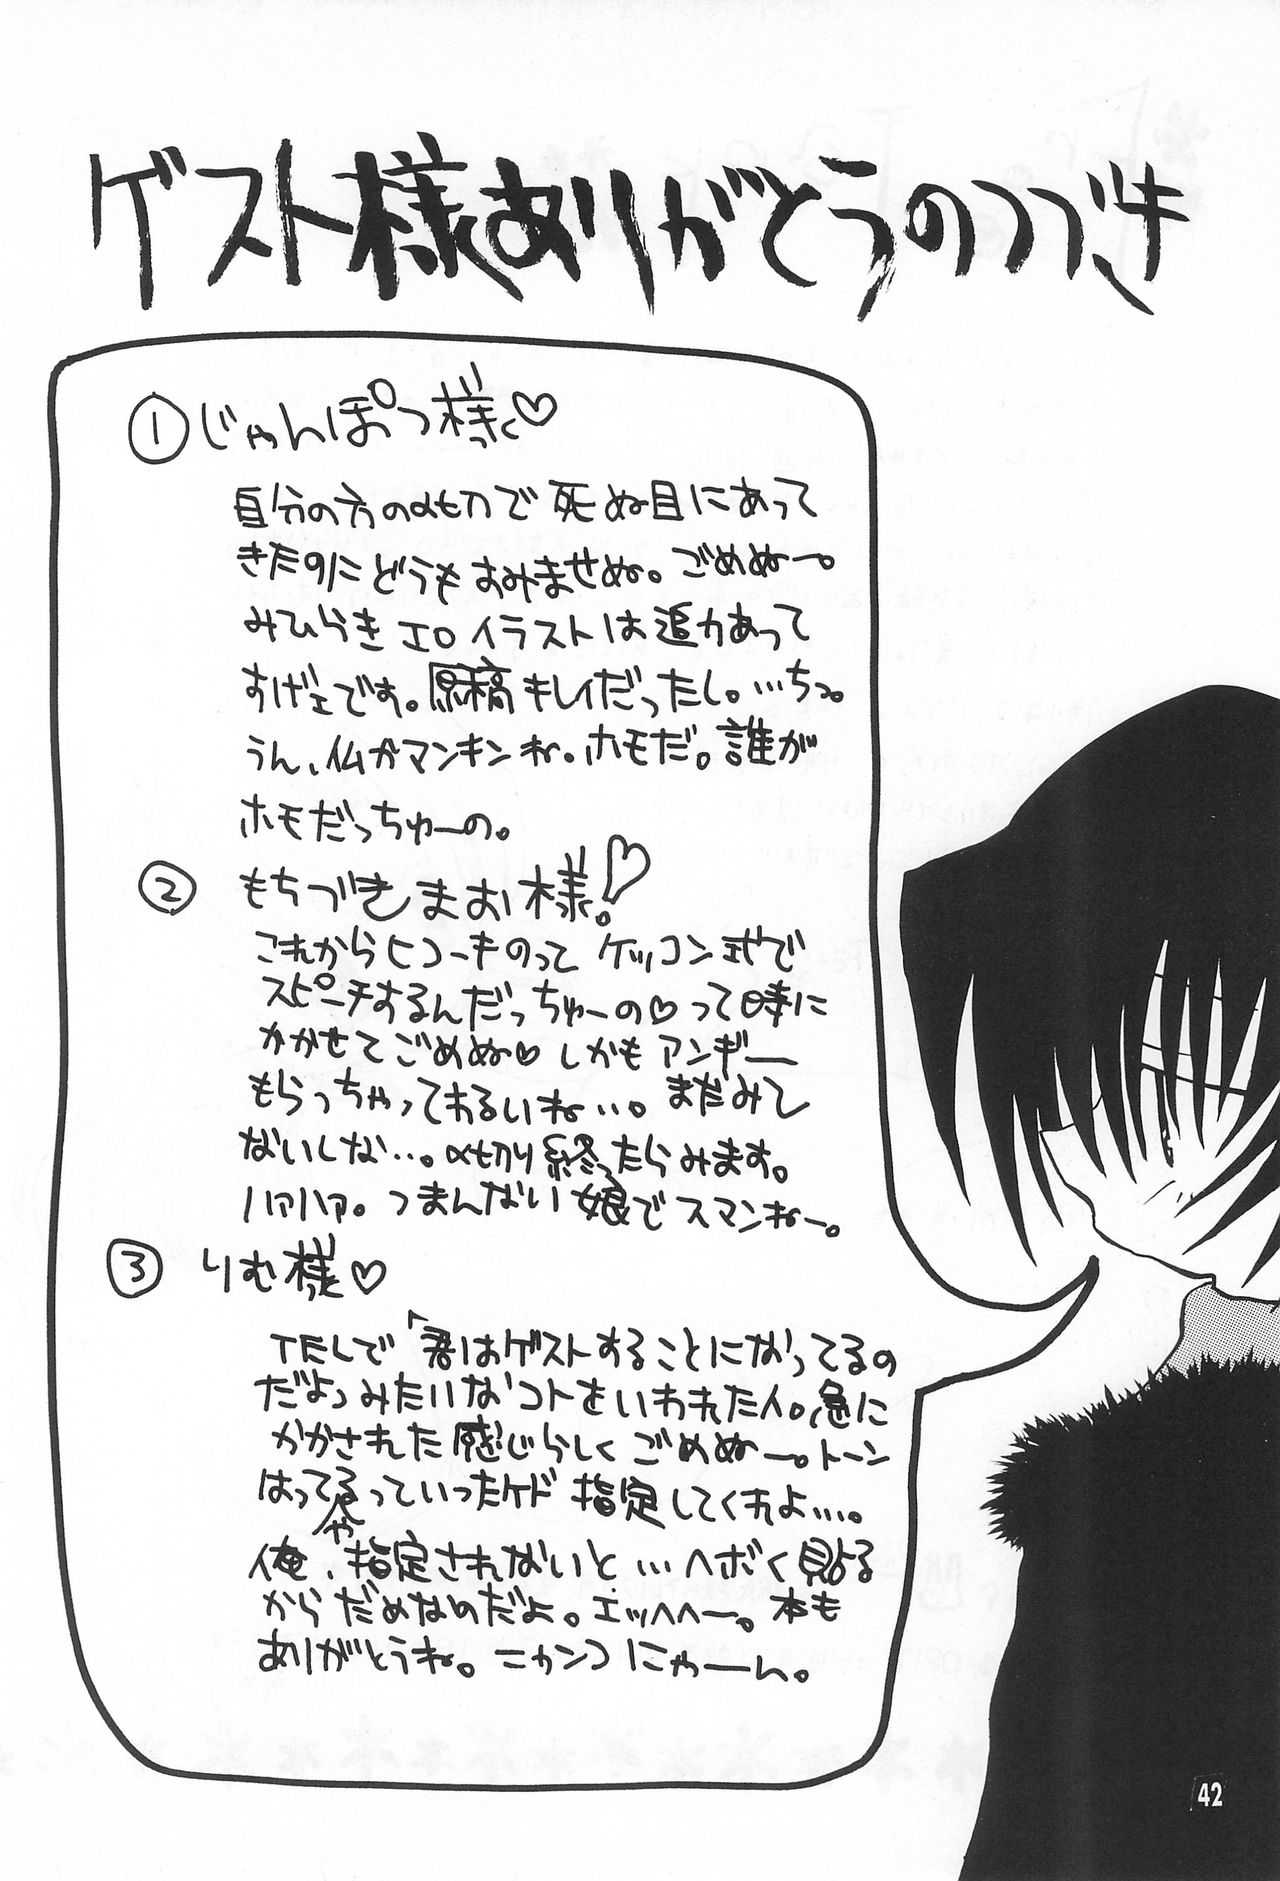 ゲスト様ありがとうのつづき
① じゃんぽつ様っ♡
自分の方の〆切で死ぬ目にあって
きたのにどうもすみませぬ。ごめぬー。
みひらきエロイラストは迫力あって
すげェです。原稿キレイだったし。…ちっ。
うん、仏がマンキンね。ホモだ。誰が
ホモだっちゅーの。
② もちづきまお様!♡
これからヒコーキのって ケッコン式で
スピーチするんだっちゅーの♡って時に
かかせてごめぬ♡しかもアンギー
もらっちゃっておるいね…。まだみし
ないしな…。〆切り終ったらみます。
ハァハァ。つまんない娘でスマンねー。
③ りむ様♡
TELで「君はゲストすることになってるの
だよ」みたいなコトをいわれた人。急に
かかされた感じらしくごめぬー。トーン
はってやるっていったケド指定してくれよ…。
俺、指定されないと…ヘボく貼る
からだめなのだよ。エッヘヘー。本も
ありがとうね。ニャンコにゃーん。
42